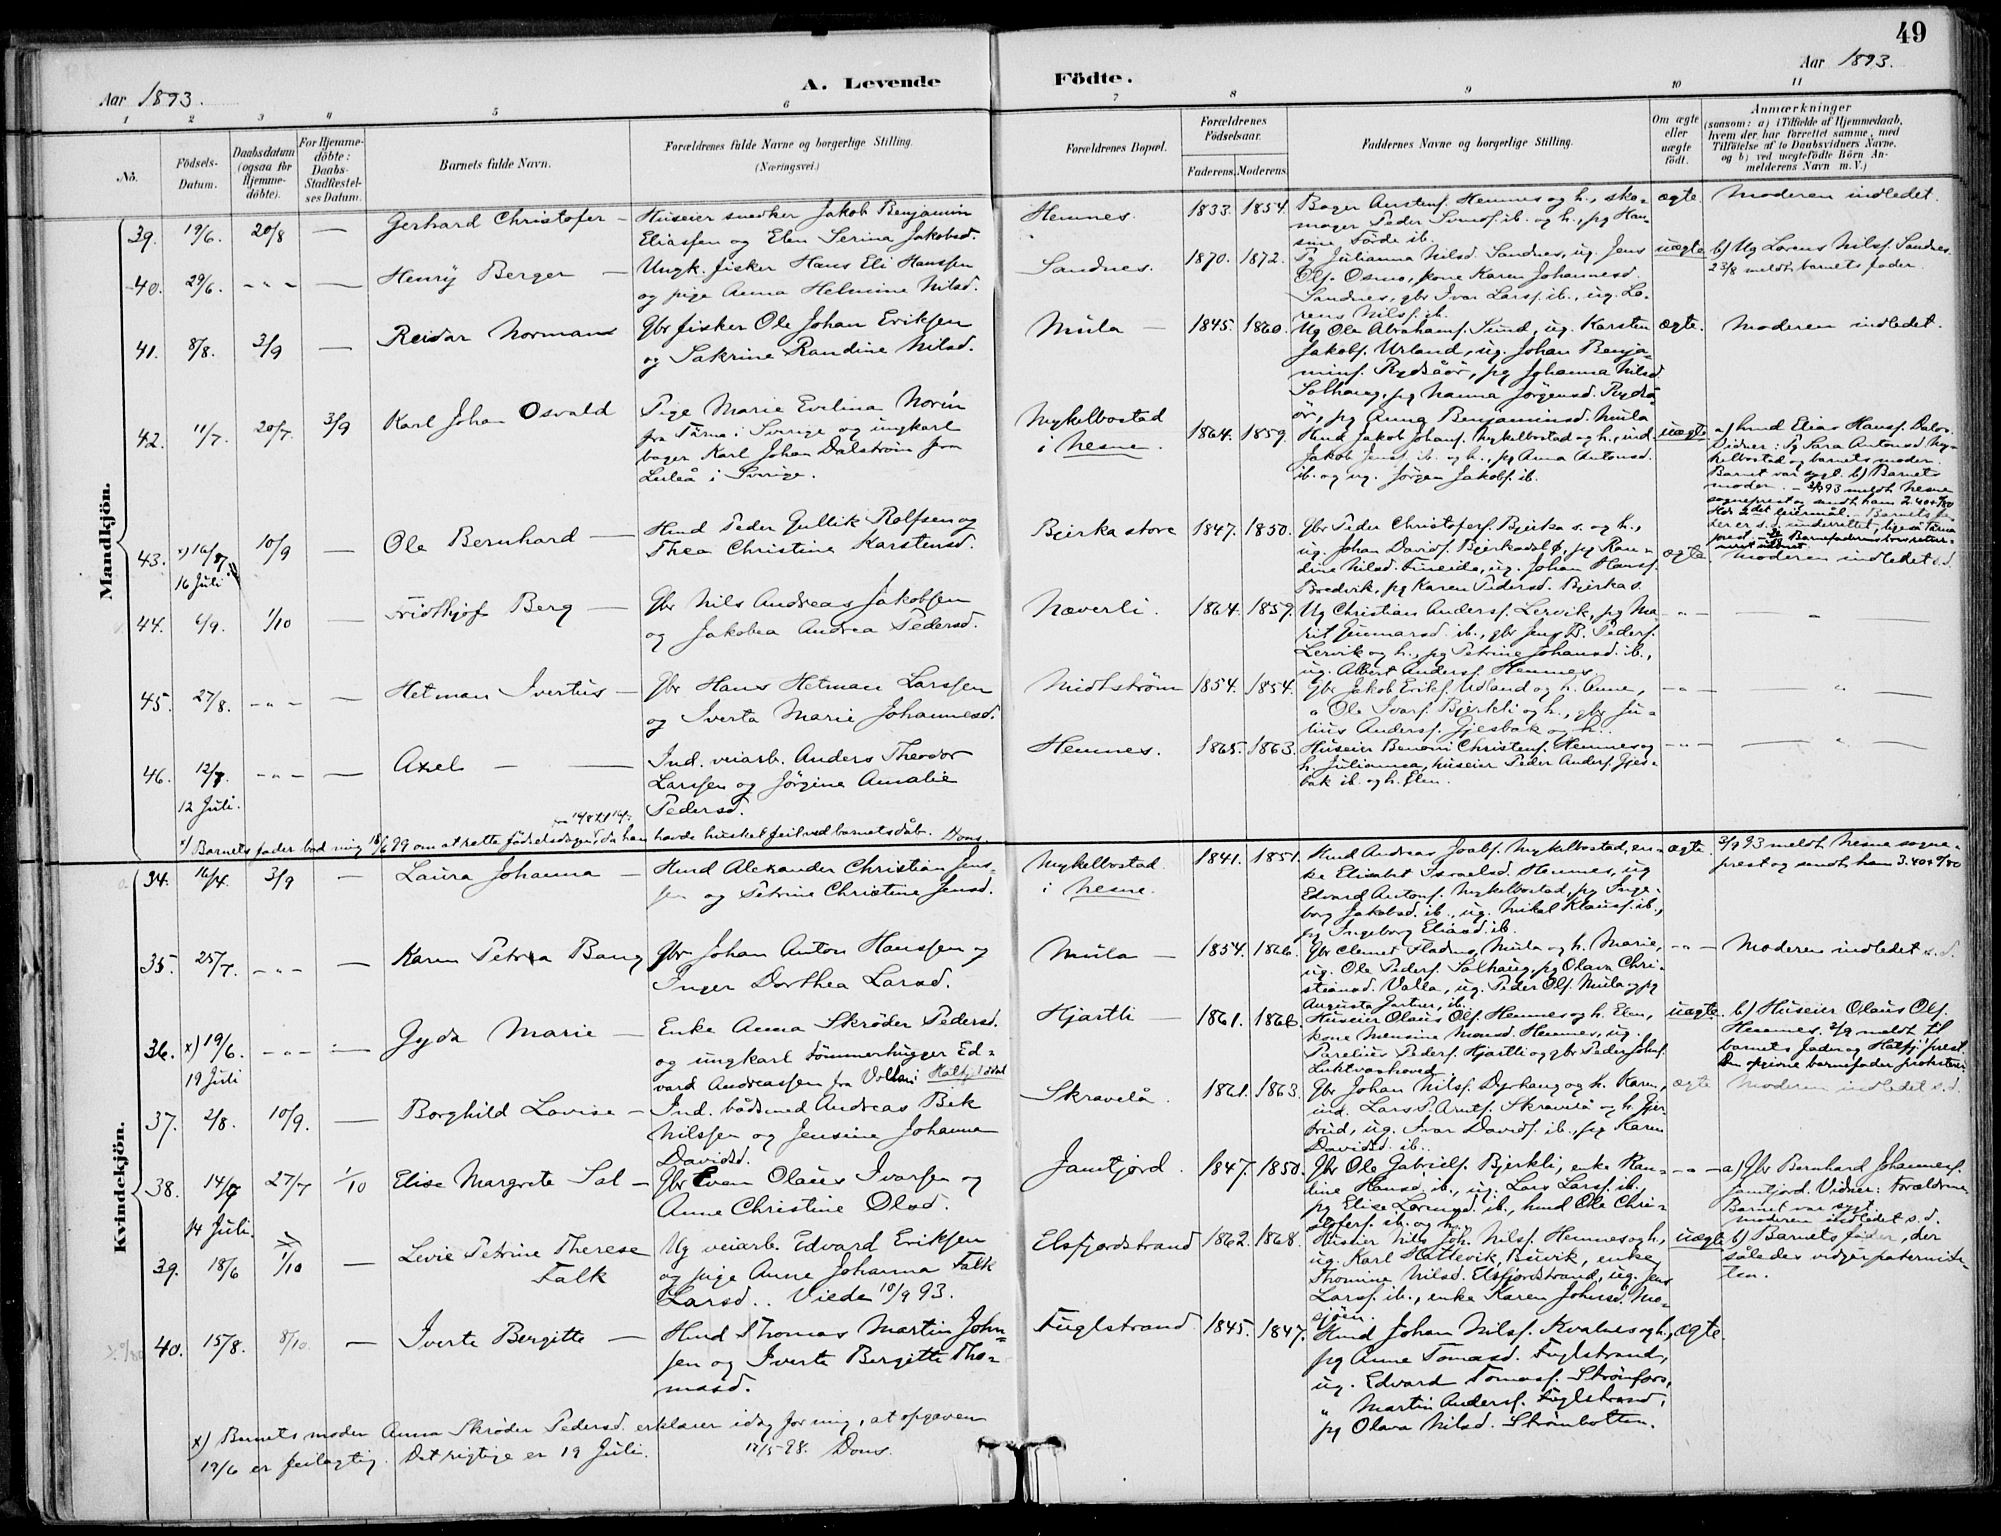 49
Aar 1893.
A. Levende
Födte.
Aar 1893.
1 2 3 4 5 6 7 8 9 10 11
No.
Födsels-
Datum.
Daabsdatum
(ogsaa for
Hjemme-
döbte).
For Hjemme-
döbte:
Daabs-
Stadfæstel-
ses Datum.
Barnets fulde Navn.
Forældrenes fulde Navne og borgerlige Stilling.
(Næringsvei.)
Forældrenes Bopæl.
Forældrenes
Födselsaar.
Faderens. Moderens.
Faddernes Navne og borgerlige Stilling.
Om ægte
eller
uægte
födt.
Anmærkninger
(saasom: a) i Tilfælde af Hjemmedaab,
hvem der har forrettet samme, med
Tilføielse af to Daabsvidners Navne,
og b) ved uægtefödte Börn An-
melderens Navn m. V.)
Mandkjön.
39. 19/6. 20/8 — Gerhard Christofer —
Huseier snedker Jakob Benjamin
Eliassen og Elen Serina Jakobsd.
Hemnes. 1833. 1854.
Hemnes og h., sko-
mager Peder ib. og h., pg Han-
sine ib.
ægte Moderen indledet.
40. 29/6. - " - — Henry Berger —
Ungk. fisker Hans Eli Hanssen
og pige Anna Helmine Nilsd.
Sandnes. 1870. 1872.
Pg Julianna Nilsd. Sandnes, ug. Jens
Olss. Osmo, kone Karen Johannesd.
Sandnes, gbr Ivar Larss. ib., ug. Lo-
rens Nilss. ib.
uægte b) Ug Lorens Nilss. Sandnes.
23/8 meldt barnets fader.
41. 8/8. 3/9 — Reidar Normann
Gbr fisker Ole Johan Eriksen
og Sakrine Randine Nilsd.
Mula — 1845. 1860.
Ug Ole Abrahamss. Sund, ug. Karsten
Jakobs. Urland, ug. Johan Benja-
mins. Rydsåör, pg Johanna Nilsd.
Solhaug, pg Nanna Jörgensd. Rydså-
ör, pg Anna Benjaminsd. Mula
ægte. Moderen indledet.
42. 11/7. 20/7. 3/9 Karl Johan Osvald
Pige Marie Evelina Norén
fra Tärna i Sverige og ungkarl
bager Karl Johan Dalström fra
Luleå i Sverige.
Nykelbostad
i Nesne. 1864. 1859.
Hmd Jakob Johans. Nykelbostad og h., ind.
Jakob Jenss. ib. og h., pg Anna Antonsd.
ib. og ug. Jörgen Jakobs. ib.
uægte a) hmd Elias Hanss. Dalos.
Vidner: Pg Sara Antonsd Ny-
kelbostad og barnets moder.
Barnet var sygt. b) Barnets
moder. — 3/9 93 meldt Nesne
sogneprest og sendt ham 2.40
43. x) 16/8 10/9 — Ole Bernhard —
16 Juli
Hmd Peder Gullik Rolfsen og
Thea Christine Karstensd.
Bjerka store 1847. 1850.
Gbr Peder Christofers. Bjerka s. og h.,
ug. Johan Davids. Bjerkadal ö., pg Ran-
dine Nilsd. Fineide, ug. Johan Hanss.
Bredvik, pg Karen Pedersd. Bjerka s.
ægte. Moderen indledet s.d.
44. 6/9. 1/10 — Fridthjof Berg —
Gbr Nils Andreas Jakobsen
og Jakobea Andrea Pedersd.
Næverli. 1864. 1859.
Ug Christian Anderss. Lervik, pg Ma-
rit Gunnarsd. ib., gbr Jens B. Peders.
Lervik og h., pg Petrine Johansd. ib.,
ug. Albert Anderss. Hemnes.
- " - — " —
45. 27/8. - " - — Hetman Ivertus —
Gbr Hans Hetman Larssen
og Iverta Marie Johannesd.
Midtström 1854. 1854.
Gbr Jakob Eriks. Udland og h. Anne,
" Ole Ivars. Bjerkli og h., gbr Ju-
lius Anderss. Gjesbak og h.
- " - — " —
46. 12/7. - " - — Axel — —
12 Juli.
Ind. veiarb. Anders Theodor
Larssen og Jörgine Amalie
Pedersd.
Hemnes. 1865. 1863.
Huseier Benoni Christens. Hemnes og
h. Julianna, huseier Peder Anders. Gjes-
bak ib. og h. Elen.
- " - — " —
x) Barnets fader bad mig 18/6 99 om at rette födselsdagen, da han havde husket feil ved barnets dåb. Dons.
Kvindekjön.
34. 16/4. 3/9 — Laura Johanna —
Hmd Alexander Christian Jens-
sen og Petrine Christine Jensd.
Nykelbostad
i Nesne. 1841. 1851.
Hmd Andreas Joabs. Nykelbostad, en-
ke Elisabet Israelsd. Hemnes, ug
Edvard Antons. Nykelbostad, pg Inge-
borg Jakobsd. ib., ug. Mikal Klauss. ib.,
pg Ingeborg Eliasd. ib.
ægte. 3/9 93 meldt Nesne sogne-
prest og sendt ham 3.40
35. 25/7. - " - — Karen Petra Bang
Gbr Johan Anton Hanssen og
Inger Dorthea Larsd.
Mula — 1854. 1866.
Gbr Clemet Flading, Mula og h. Marie,
ug. Ole Peders. Solhaug, pg Olava Chri-
stiansd. Valla, ug. Peder Ols. Mula og pg
Augusta ib.
- " - Moderen indledet s.d.
36. x) 19/6. - " - — Gyda Marie —
19 Juli
Enke Anna Skröder Pedersd.
og ungkarl Tömmerhugger Ed-
vard Andreassen fra i Halfjeldal
Hjartli — 1861. 1866.
Huseier Olaus Ols. Hemnes og h. Elen,
kone Mensine Monsd. Hemnes, ug.
Parelius Peders. Hjartli og gbr Peder Johs.
Luktvashoved.
uægte. b) Huseier Olaus Ols.
Hemnes. 2/9 meldt til
barnets fader og prest.
Den opgivne barnefader protesterer
37. 2/8. 10/9. — Borghild Lovise —
Ind. bådsmed Andreas Bek
Nilssen og Jensine Johanna
Davidsd.
Skravelå. 1861. 1863.
Gbr Johan Nilss. Dyrhaug og h. Karen,
ind. Lars P. Arnts. Skravelå og h. Gjer-
trud, ug. Ivar Davids. ib., pg Karen
Davidsd. ib.
ægte Moderen indledet s.d.
38. 14/7 27/7 1/10 Elise Margrete Sal —
14 Juli.
Gbr Even Olaus Ivarsen og
Anne Christine Olsd.
Jamtjord. 1847. 1850.
Gbr Ole Gabriels. Bjerkli, enke Ran-
dine Hansd. ib., ug. Lars Larss. ib.,
pg Elise Lorensd. ib., hmd Ole Chri-
stofers. ib. og h.
- " - a) Gbr Bernhard Johanness.
Jamtjord. Vidner: Forældrene.
Barnet var sygt.
Moderen indledet s.d.
39. 18/6 1/10 — Levie Petrine Therese
Falk
Ug veiarb. Edvard Eriksen
og pige Anne Johanna Falk
Larsd. Viede 10/9 93.
Elsfjordstrand 1862. 1868.
Huseier Nils Joh. Nilss. Hemnes og h.,
ug. Karl Hattevik, Buvik, enke
Thomine Nilsd. Elsfjordstrand, ug. Jens
Larss. ib., enke Karen Johnsd. Mo-
sjöen.
uægte b) Barnets fader, der
således vidgår paternite-
ten.
40. 15/8. 8/10. — Iverte Bergitte —
Hmd Thomas Martin John-
sen og Iverte Bergitte Tho-
masd.
Fuglstrand 1845. 1847.
Hmd Johan Nilss. Kvalnes og h.,
pg Anne Tomasd. Fuglstrand,
ug. Edvard Tomass. Strömfors,
" Martin Anderss. Fuglstrand,
pg Olava Nilsd. Strömbotten.
ægte.
x) Barnets moder Anna Skröder Pedersd. erklærer idag for mig, at opgaven
19/6 er feilagtig. Det rigtige er 19 Juli. 12/5-98. Dons.